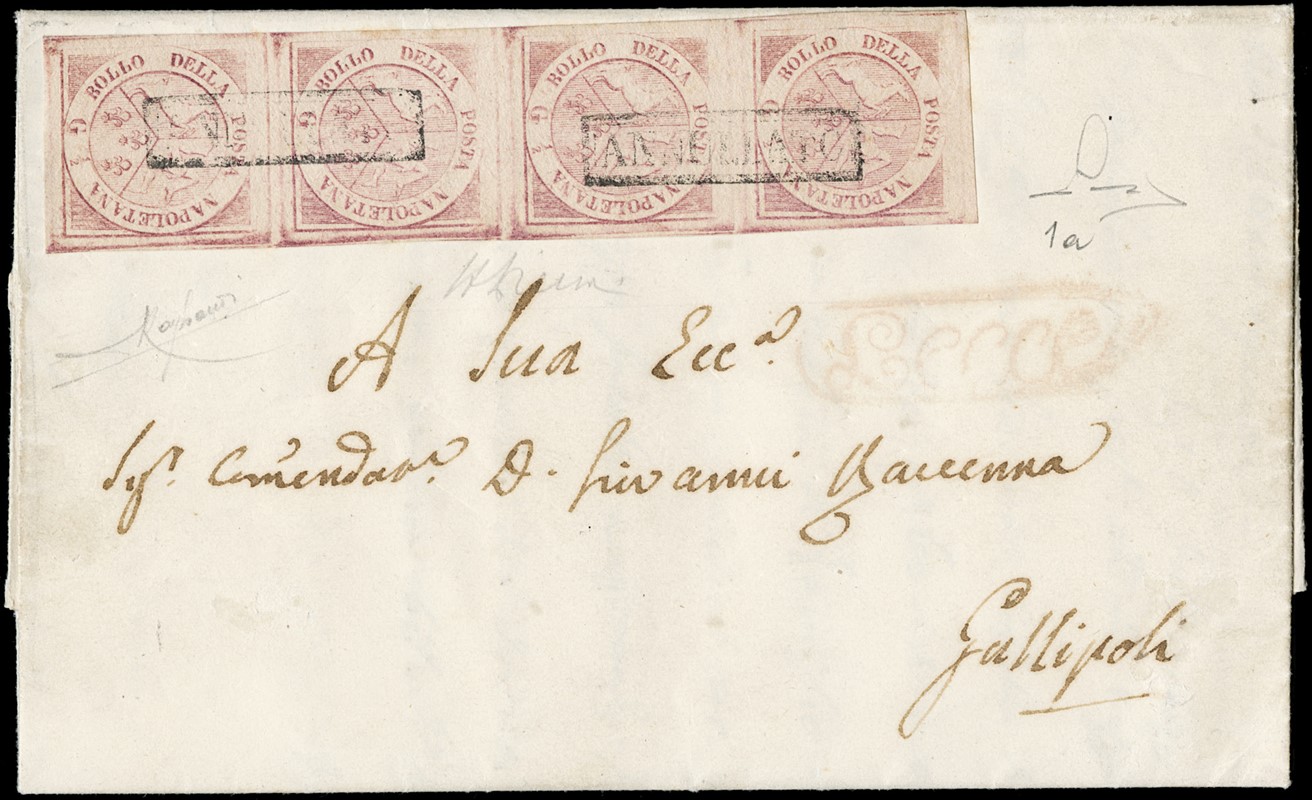 G ½ BOLLO DELLA POSTA NAPOLETANA
G BOLLO DELLA POSTA NAPOLETANA
G ½ BOLLO DELLA POSTA NAPOLETANA
G BOLLO DELLA POSTA NAPOLETANA
ANNULLATO
1a
A Sua Ecc.a
Sig.r Com̃endar.e D. Giovanni Ravenna
Gallipoli